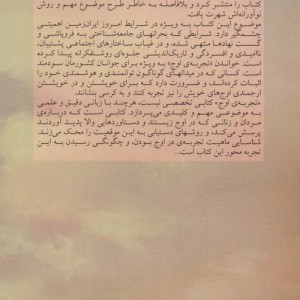 کتاب را منتشر کرد و بلافاصله به خاطر طرح موضوع مهم و روش
نوآورانه‌اش شهرت یافت.
موضوع این کتاب به ویژه در شرایط امروز ایران‌زمین اهمیتی
چشمگیر دارد. شرایطی که بحرانهای جامعه‌شناختی به فروپاشی و
گسست نهادها منتهی شده، و در غیاب ساختارهای اجتماعی پشتیبان،
ناامیدی و افسردگی و تاریک‌اندیشی جلوه‌ی روشنفکرانه پیدا کرده
است. خواندن «تجربه‌ی اوج» به ویژه برای جوانان کشورمان سودمند
است. کسانی که در میدانهای گوناگون توانمندی و هوشمندی خود را
اثبات کرده‌اند، و ضرورت دارد که برای خویشتن و در خویشتن
ارجمندی اوج‌های خویش را نیز تجربه کنند و به کرسی بنشانند.
«تجربه‌ی اوج» کتابی تخصصی نیست، هرچند با زبانی دقیق و علمی
به موضوعی مهم و کلیدی می‌پردازد. کتابی است که درباره‌ی
مردان و زنانی که در اوج زیستند و دستاوردهایی والا پدید آوردند
پرسش می‌کند، و روشهای دستیابی به این موقعیت را محک می‌زند.
شناسایی ماهیت تجربه‌ی در اوج بودن، و چگونگی رسیدن به این
تجربه محور این کتاب است...